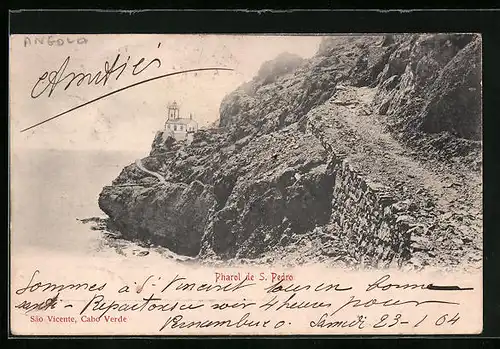 ANGOLA
Amitié
Pharol de S. Pedro
Sommes à St. Vincent tous en bonne
santé - Repartons vers 4 heures pour
São Vicente, Cabo Verde
Pernambuco. Samedi 23-1 04